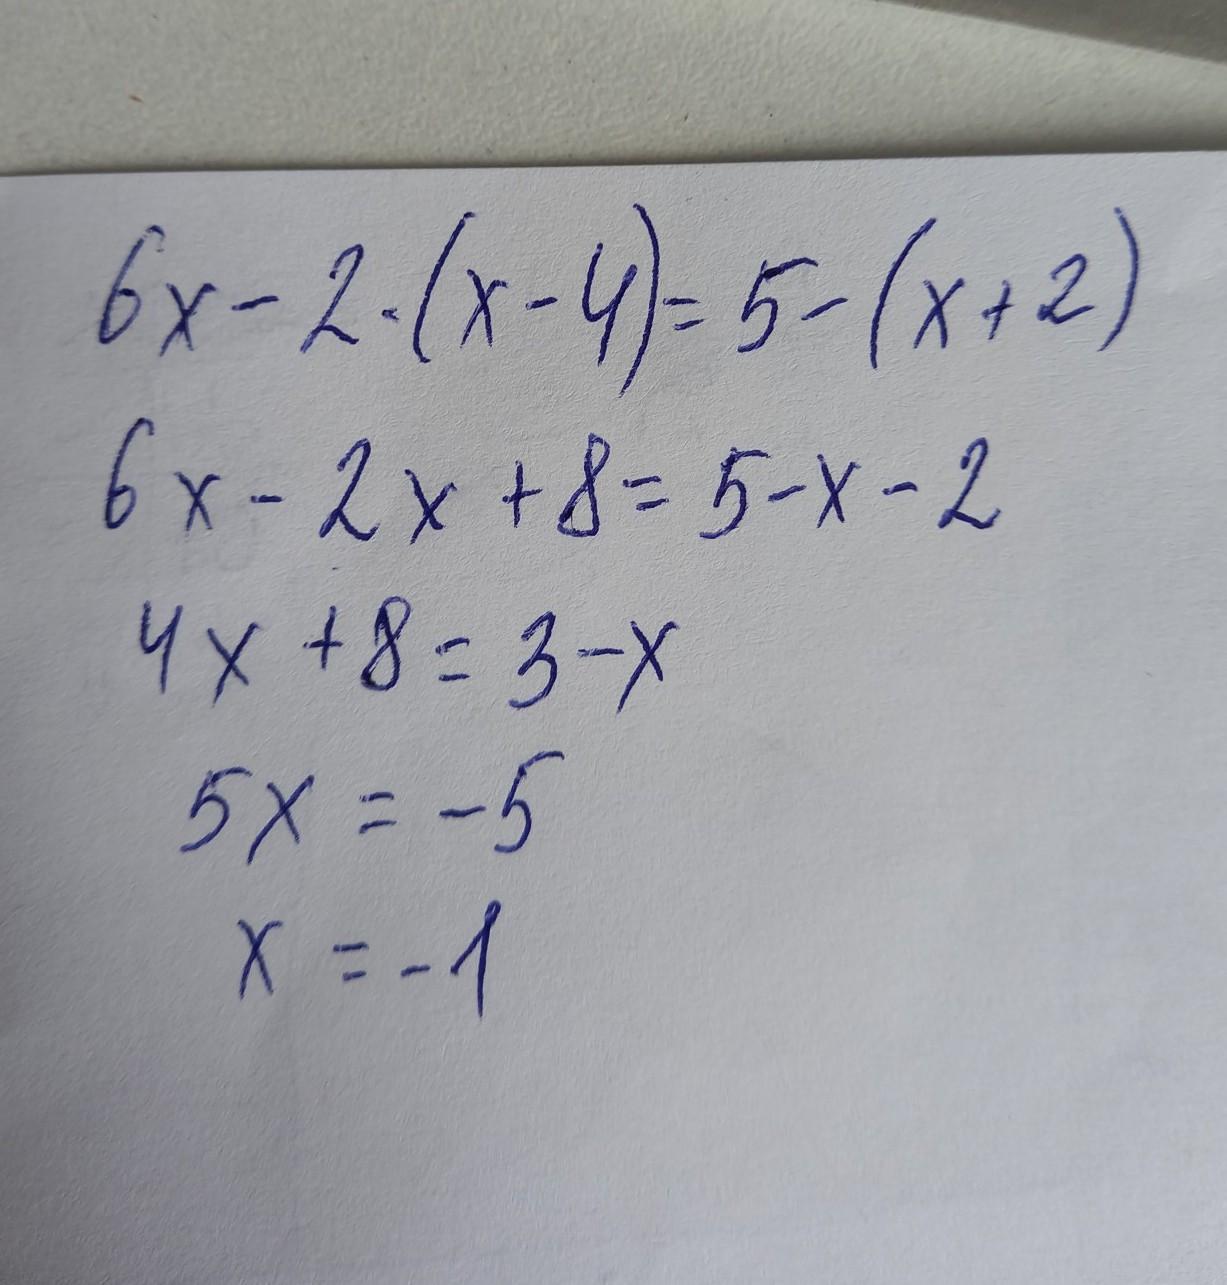 6x - 2·(x - 4) = 5 - (x + 2)
6x - 2x + 8 = 5 - x - 2
4x + 8 = 3 - x
5x = -5
x = -1